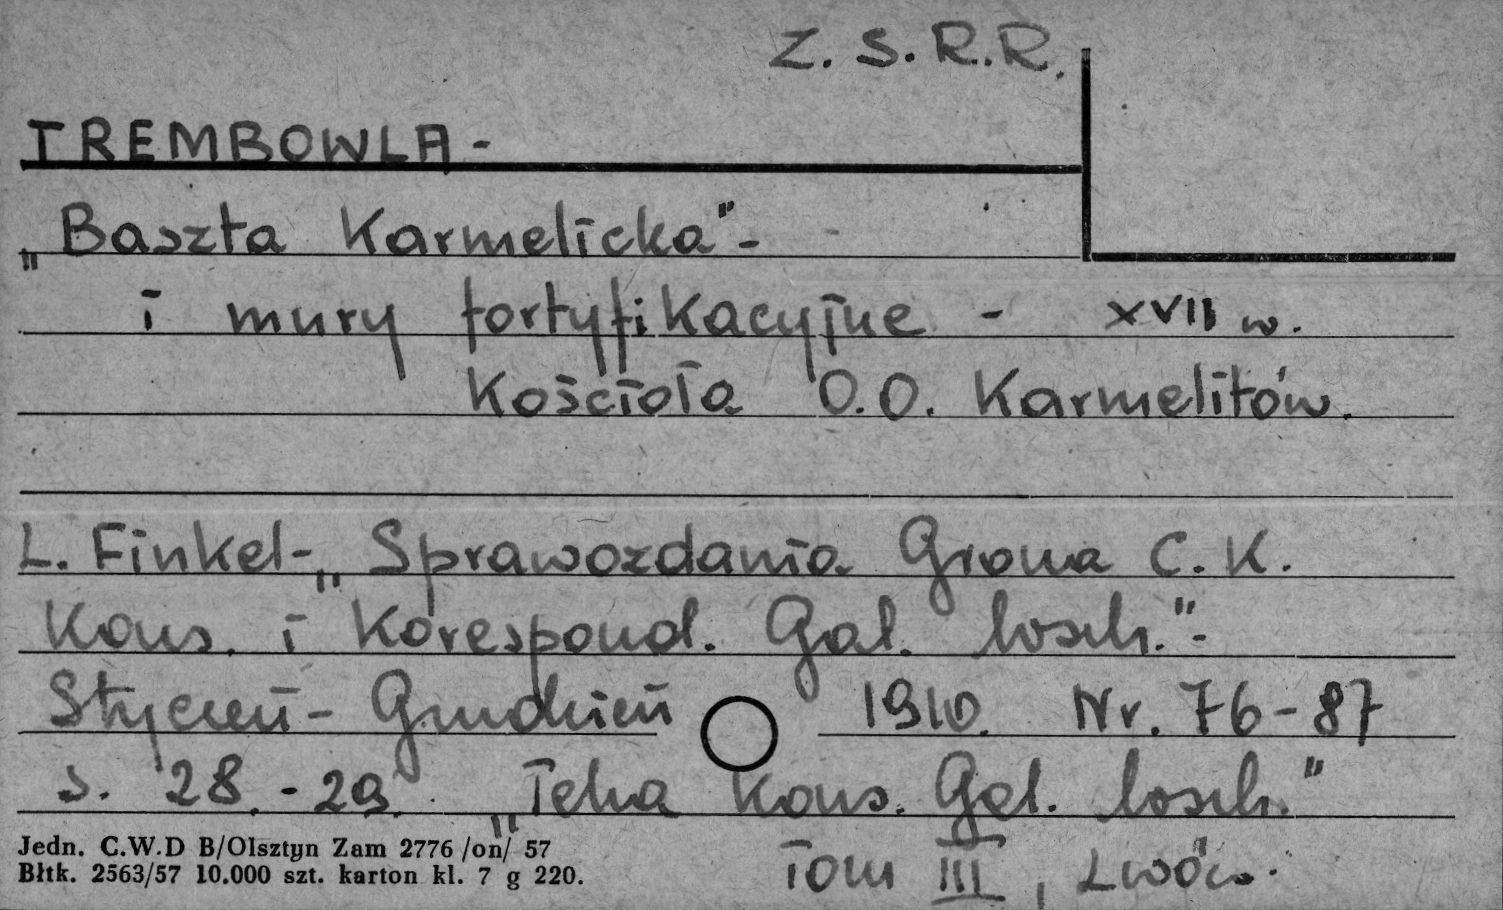 Z. S. R. R.
TREMBOWLA -
„Baszta Karmelicka" -
i mury fortyfikacyjne - XVII w.
Kościoła O.O. Karmelitów.
L. Finkel - „Sprawozdania Grona C. K.
Kons. i Korespond. Gal. Wsch." -
Styczeń - Grudzień 1910. Nr. 76-87
s. 28. - 29. „Teka Kons. Gal. Wsch."
Tom III, Lwów.
Jedn. C.W.D B/Olsztyn Zam 2776 /on/ 57
Błtk. 2563/57 10.000 szt. karton kl. 7 g 220.